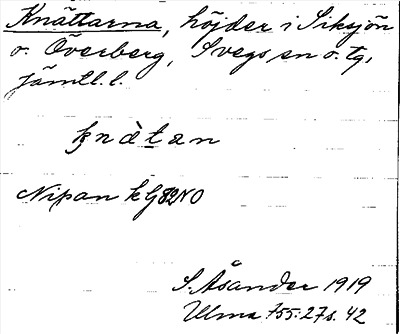 Knättarna, höjder i Siksjön
o. Överberg, Svegs sn o. tg,
Jämtl. l.
k̬nàt̠an
Nipan k G82NO
S. Åsander 1919
Ulma 755:27 s. 42